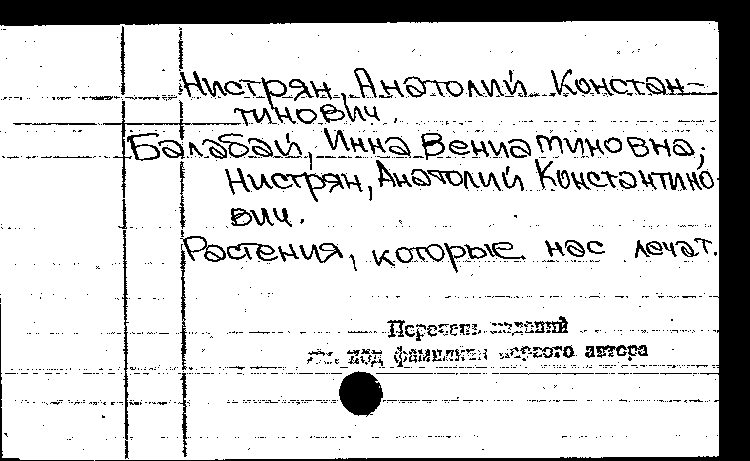 Нистрян, Анатолий Констан-
тинович.
Балабай, Инна Вениатиновна;
Нистрян, Анатолий Константино-
вич.
Растения, которые нас лечат.
Перечень изданий
см. под фамилией первого автора